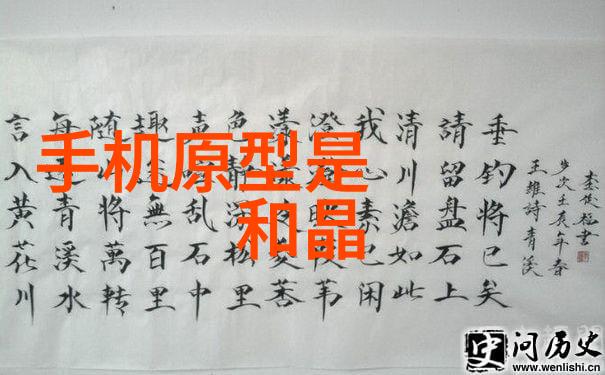 手机原型是
和晶
言入黄花川
每青溪水
随将萬轉
趣無百里
声乱石中
色静深松里
漾
澄苇
我心素已闲
清川澹如此
請留盘石上
垂钓将已矣
王維詩青溪
岁次壬辰年春
李書
问历史
www.wenlishi.cn